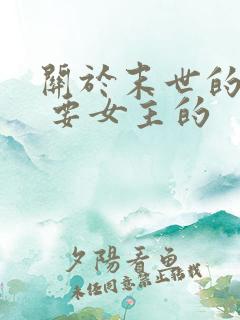 關於末世的
要女主的
夕陽看魚
未经同意禁止转载